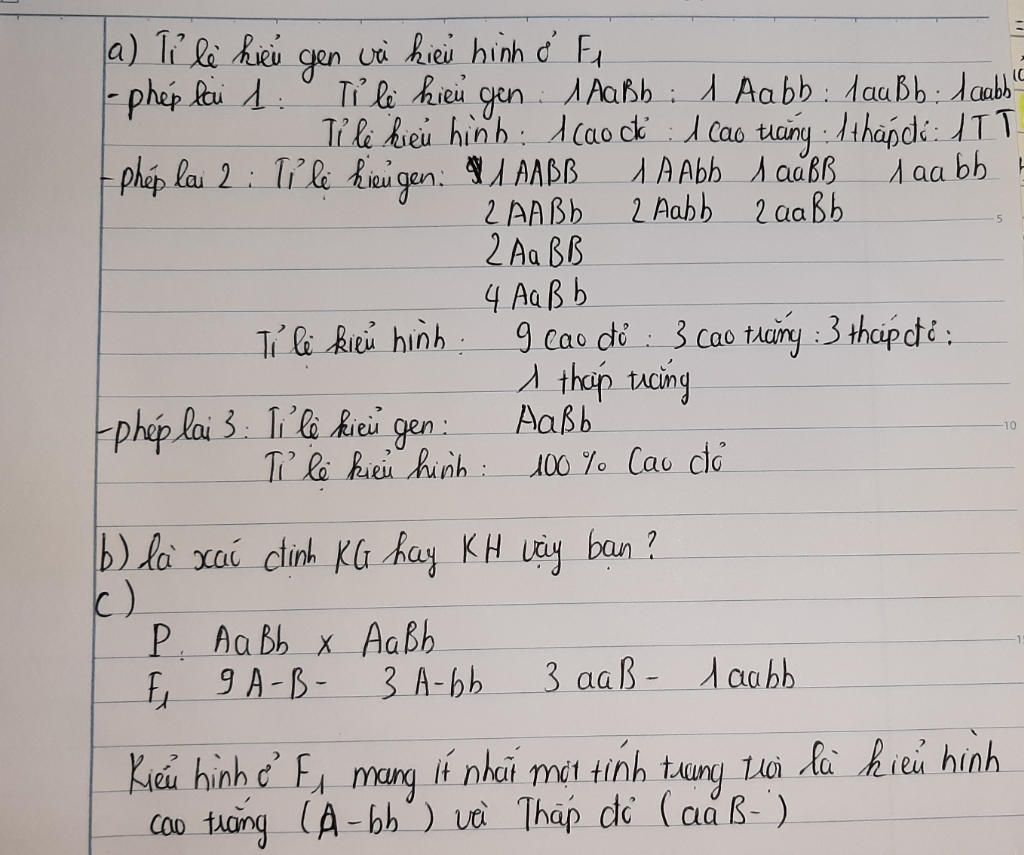 a) Tỉ lệ kiểu gen và kiểu hình ở F1
- phép lai 1: Tỉ lệ kiểu gen: 1AaBb: 1 Aabb: 1aaBb: 1aabb
Tỉ lệ kiểu hình: 1 cao đỏ: 1 cao trắng: 1 thấp đỏ: 1TT
- phép lai 2: Tỉ lệ kiểu gen: 1 AABB 1 AAbb 1 aaBB 1 aabb
2 AABb 2 Aabb 2 aaBb
2 AaBB
4 AaBb
Tỉ lệ kiểu hình: 9 cao đỏ: 3 cao trắng: 3 thấp đỏ:
1 thấp trắng
- phép lai 3: Tỉ lệ kiểu gen: AaBb
Tỉ lệ kiểu hình: 100% Cao đỏ
b) là xác định KG hay KH vậy bạn?
c)
P: AaBb x AaBb
F1 9 A-B- 3 A-bb 3 aaB- 1 aabb
Kiểu hình ở F1 mang ít nhất một tính trạng trội là kiểu hình
cao trắng (A-bb) và Thấp đỏ (aaB-)